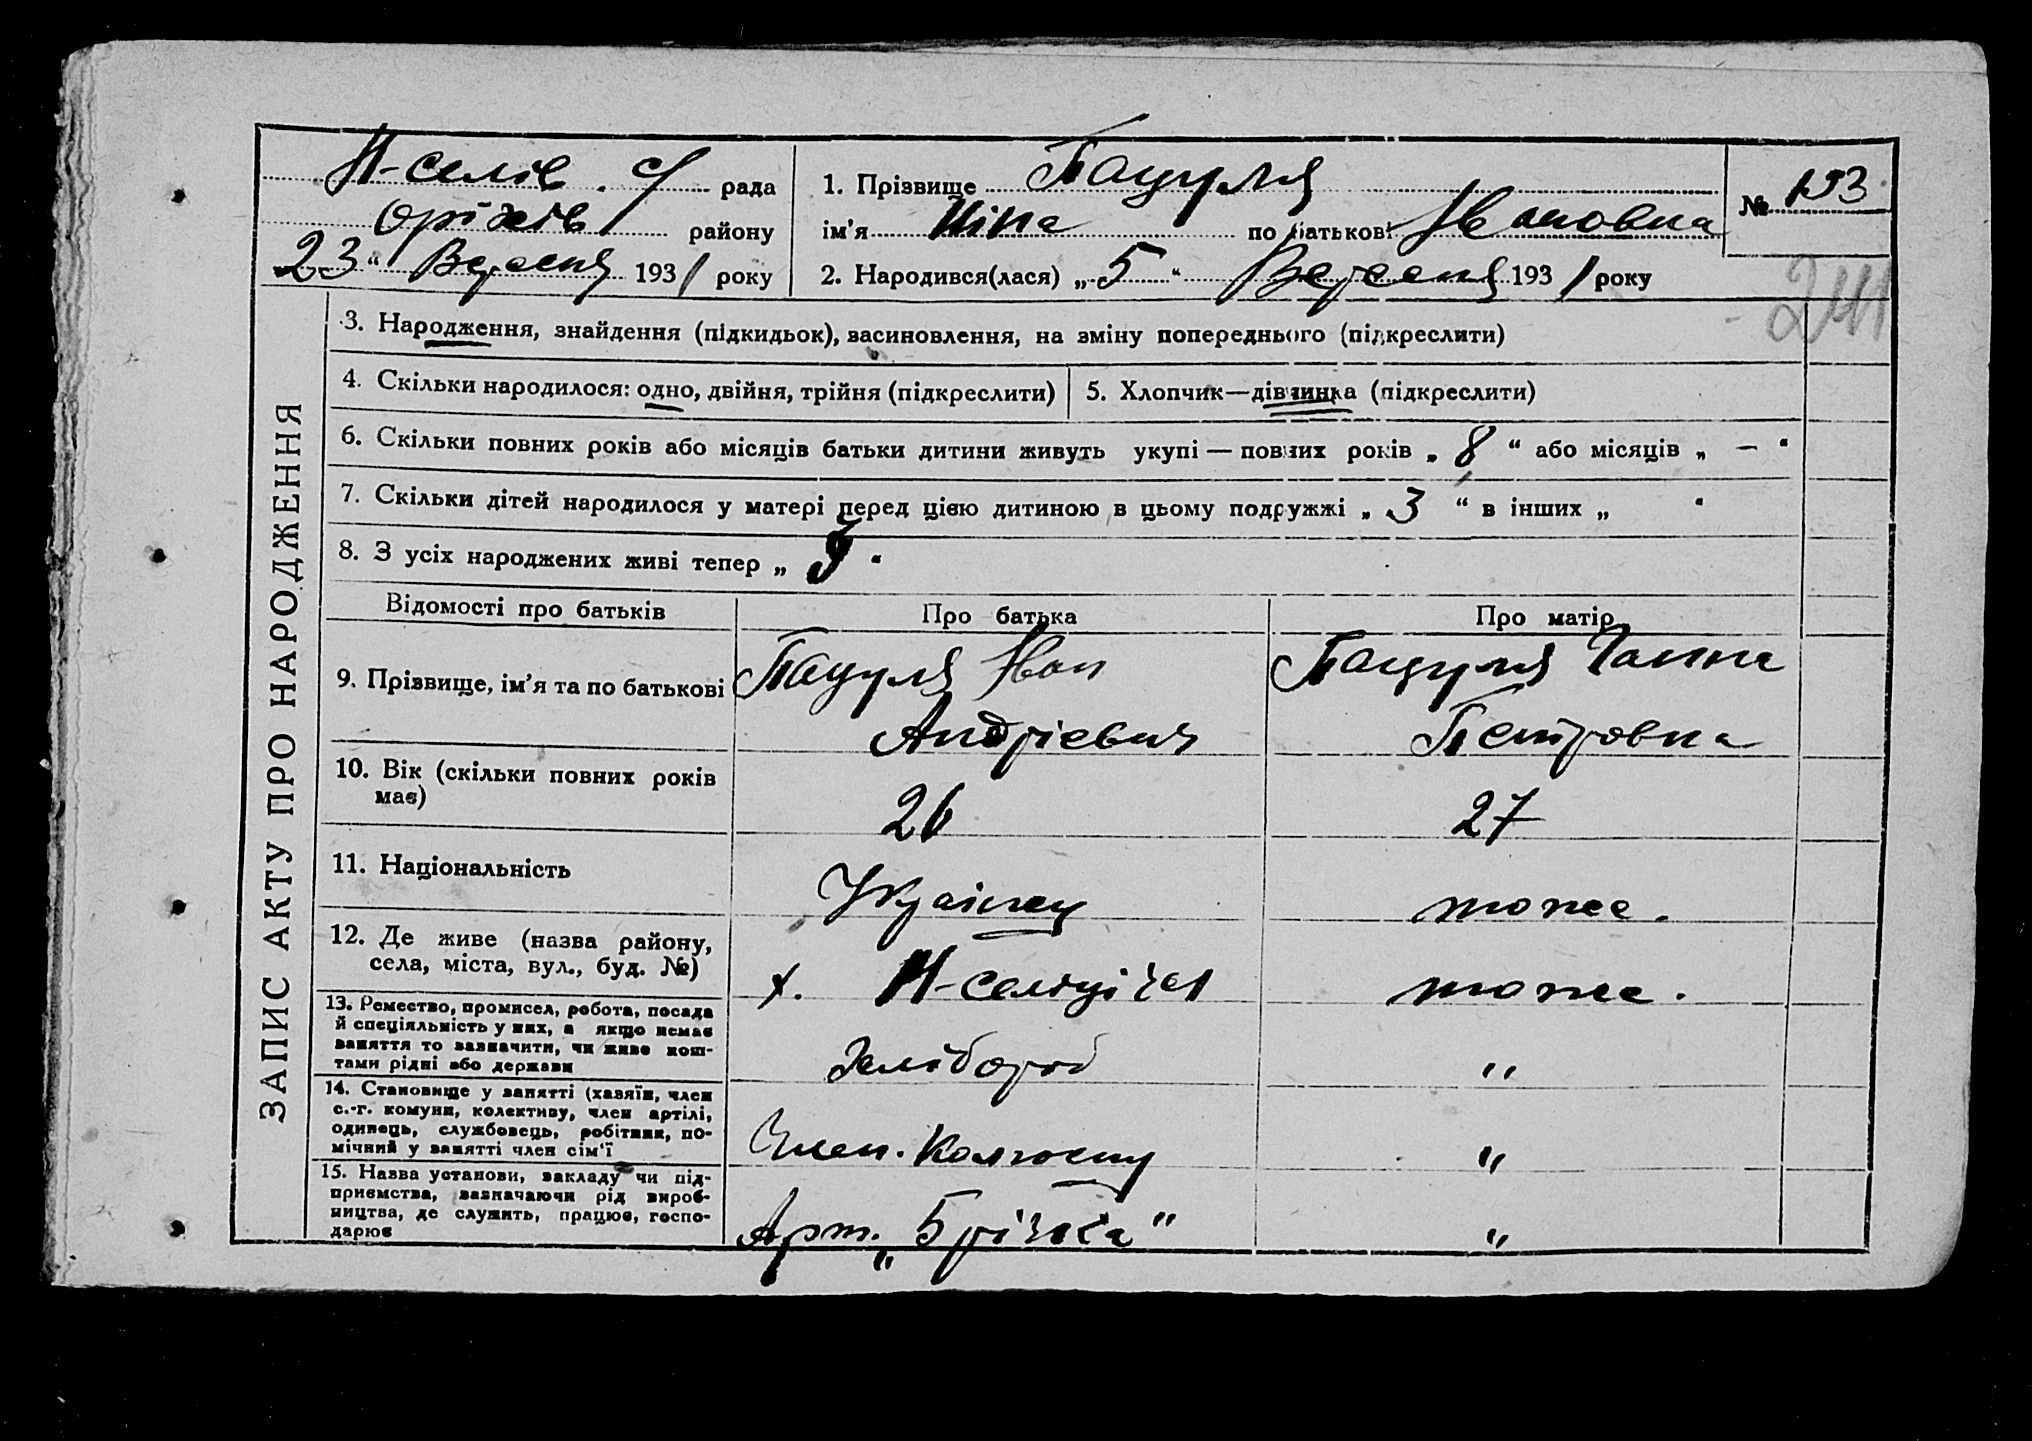 Н-селів. с/ рада
Оріхів району
23 " Вересня 1931 року
1. Прізвище Пацуля
ім'я Ніна по батькові Івановна
2. Народився(лася) „ 5 " Вересня 1931 року
№ 193
241
ЗАПИС АКТУ ПРО НАРОДЖЕННЯ
3. Народження, знайдення (підкидьок), васиновлення, на зміну попереднього (підкреслити)
4. Скільки народилося: одно, двійня, трійня (підкреслити)
5. Хлопчик—дівчинка (підкреслити)
6. Скільки повних років або місяців батьки дитини живуть укупі — повних років „ 8 " або місяців „ — "
7. Скільки дітей народилося у матері перед цією дитиною в цьому подружжі „ 3 " в інших „ "
8. З усіх народжених живі тепер „ 3 "
Відомості про батьків
Про батька
Про матір
9. Прізвище, ім'я та по батькові
Пацуля Іван
Андрієвич
Пацуля Ганна
Петровна
10. Вік (скільки повних років
має)
26
27
11. Національність
Українец
тоже.
12. Де живе (назва району,
села, міста, вул., буд. №)
х. Н-селиці
тоже.
13. Ремество, промисел, робота, посада
й спеціяльність у них, а якщо немає
заняття то зазначити, чи живе кош-
тами рідні або держави
Хлібороб
"
14. Становище у занятті (хазяїн, член
с.-г. комуни, колективу, член артілі,
одинець, службовець, робітник, по-
мічний у занятті член сім'ї
Член. Колгоспу
"
15. Назва установи, закладу чи під-
приємства, зазначаючи рід вироб-
ництва, де служить, працює, госпо-
дарює
Арт. „
"